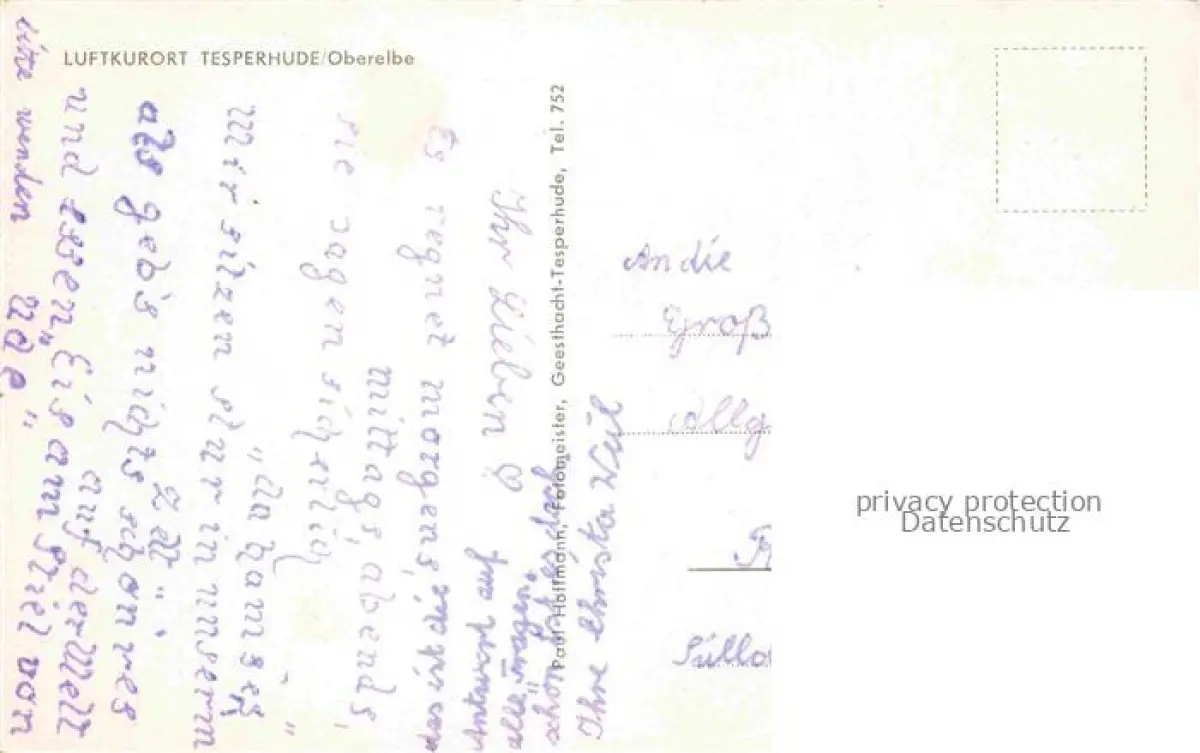 LUFTKURORT TESPERHUDE/Oberelbe
Ihr Lieben
Es regnet morgens,
mittags, abends,
sie sagen sicherlich
"da ham se's"
Wir sitzen stur in unserm
"Zelt"
als geb's nichts schönres
auf der Welt
und essen "Eis am Stiel von
Ude"
bitte wenden
das ist die
Antwort auf
alle Fragen.
schön ist es doch
Ihre Christa Weil
Paul Hoffmann, Fotomeister, Geesthacht-Tesperhude, Tel. 752
An die
Groß
Allg
Süllo
privacy protection
Datenschutz